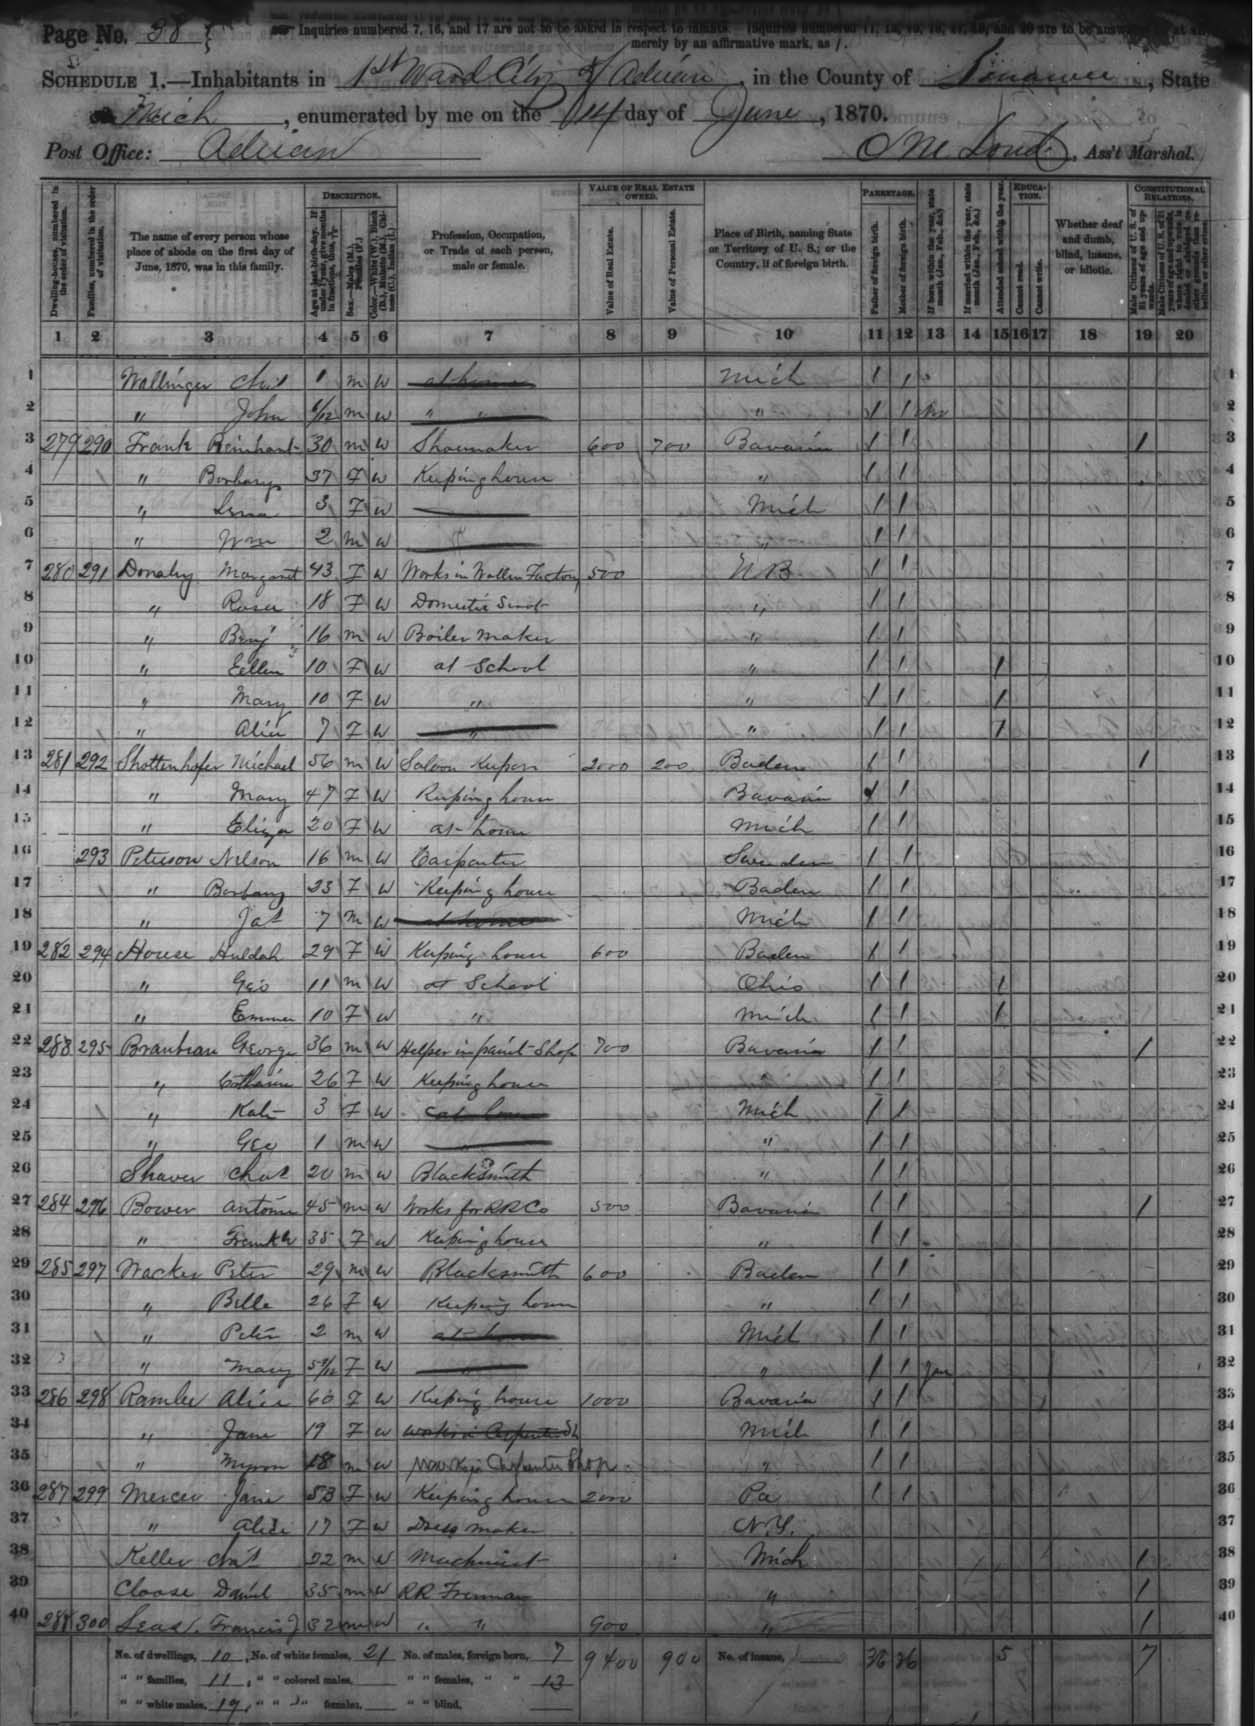 Page No. 38
Inquiries numbered 7, 16, and 17 are not to be asked in respect to infants. Inquiries numbered 11, 12, 15, 16, 17, 19, and 20 are to be answered
merely by an affirmative mark, as /.
SCHEDULE 1.—Inhabitants in 1st Ward City of Adrian, in the County of Lenawee, State
of Mich, enumerated by me on the 14 day of June, 1870.
Post Office: Adrian , Ass't Marshal.
Dwelling-houses, numbered in the order of visitation.
Families, numbered in the order of visitation.
The name of every person whose place of abode on the first day of June, 1870, was in this family.
DESCRIPTION.
Age at last birth-day. If under 1 year, give months in fractions, thus, 3/12
Sex.—Males (M.), Females (F.)
Color.—White (W.), Black (B.), Mulatto (M.), Chinese (C.), Indian (I.)
Profession, Occupation, or Trade of each person, male or female.
VALUE OF REAL ESTATE OWNED.
Value of Real Estate.
Value of Personal Estate.
Place of Birth, naming State or Territory of U. S.; or the Country, if of foreign birth.
PARENTAGE.
Father of foreign birth.
Mother of foreign birth.
If born within the year, state month (Jan., Feb., &c.)
If married within the year, state month (Jan., Feb., &c.)
Attended school within the year.
EDUCATION.
Cannot read.
Cannot write.
Whether deaf and dumb, blind, insane, or idiotic.
CONSTITUTIONAL RELATIONS.
Male Citizens of U. S. of 21 years of age and upwards.
1 2 3 4 5 6 7 8 9 10 11 12 13 14 15 16 17 18 19 20
1 Wallinger Chas 1 m W at home Mich / / 1
2 " John m W " " " / / 2
3 279 290 Frank Reinhart 30 m W Shoemaker 600 700 Bavaria / / / 3
4 " 37 F W Keeping house " / / 4
5 " Lena 3 F W Mich / / 5
6 " Wm 2 m W " / / 6
7 280 291 Donahy Margaret 43 F W Works in Wollen Factory 500 N B / / 7
8 " Rosa 18 F W Domestic Servt " / / 8
9 " Benj 16 m W Boiler maker " / / 9
10 " Ellen 10 F W at School " / / / 10
11 " Mary 10 F W " " / / / 11
12 " Alice 7 F W " " / / / 12
13 281 292 Shottenhofer Michael 56 m W Saloon Keeper 2000 200 Baden / / / 13
14 " Mary 47 F W Keeping house Bavaria / / 14
15 " Eliza 20 F W at home Mich / / 15
16 293 Peterson Nelson 16 m W Carpenter Sweden / / 16
17 " 23 F W Keeping house Baden / / 17
18 " Jas 7 m W at home Mich / / 18
19 282 294 House Huldah 29 F W Keeping house 600 Baden / / 19
20 " Geo 11 m W at School Ohio / / / 20
21 " Emma 10 F W " Mich / / / 21
22 283 295 Braubran George 36 m W Helper in paint Shop 700 Bavaria / / / 22
23 " Catharine 26 F W Keeping house " / / 23
24 " Kate 3 F W at home Mich / / 24
25 " Geo 1 m W " / / 25
26 Shaver Chas 20 m W Blacksmith " / / 26
27 284 296 Bower Antoine 45 m W Works for RR Co 500 Bavaria / / / 27
28 " 35 F W Keeping house " / / 28
29 285 297 Wacker Peter 29 m W Blacksmith 600 Baden / / 29
30 " Belle 26 F W Keeping house " / / 30
31 " Peter 2 m W at home Mich / / 31
32 " Mary 5/12 F W " / / Jan 32
33 286 298 Ramler Alice 60 F W Keeping house 1000 Bavaria / / 33
34 " Jane 19 F W Works in Carpenter Sh Mich / / 34
35 " Myron 18 m W works in Carpenter Shop " / / 35
36 287 299 Mercer Jane 53 F W Keeping house 2000 Pa / / 36
37 " Alice 17 F W Dress maker N.Y. 37
38 Keller Chas 22 m W Machinist Mich / 38
39 Cloose Daniel 35 m W RR Fireman " / 39
40 288 300 Seas Francis J 32 m W " " 900 " / 40
No. of dwellings, 10, No. of white females, 21 No. of males, foreign born, 7 9400 900 No. of insane, 36 36 5 7
" " families, 11, " " colored males, " " females, " " 13
" " white males, 19, " " " females, " " blind,